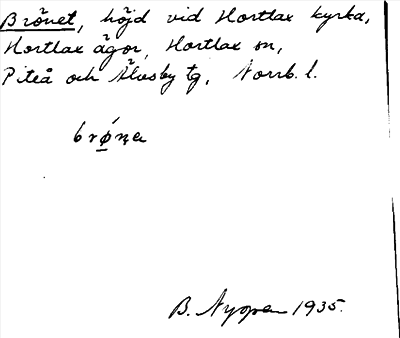 Brönet, höjd vid Hortlax kyrka,
Hortlax ägor, Hortlax sn,
Piteå och Älvsby tg, Norrb. l.
brǿ̱n̥a
B. Nygren 1935.